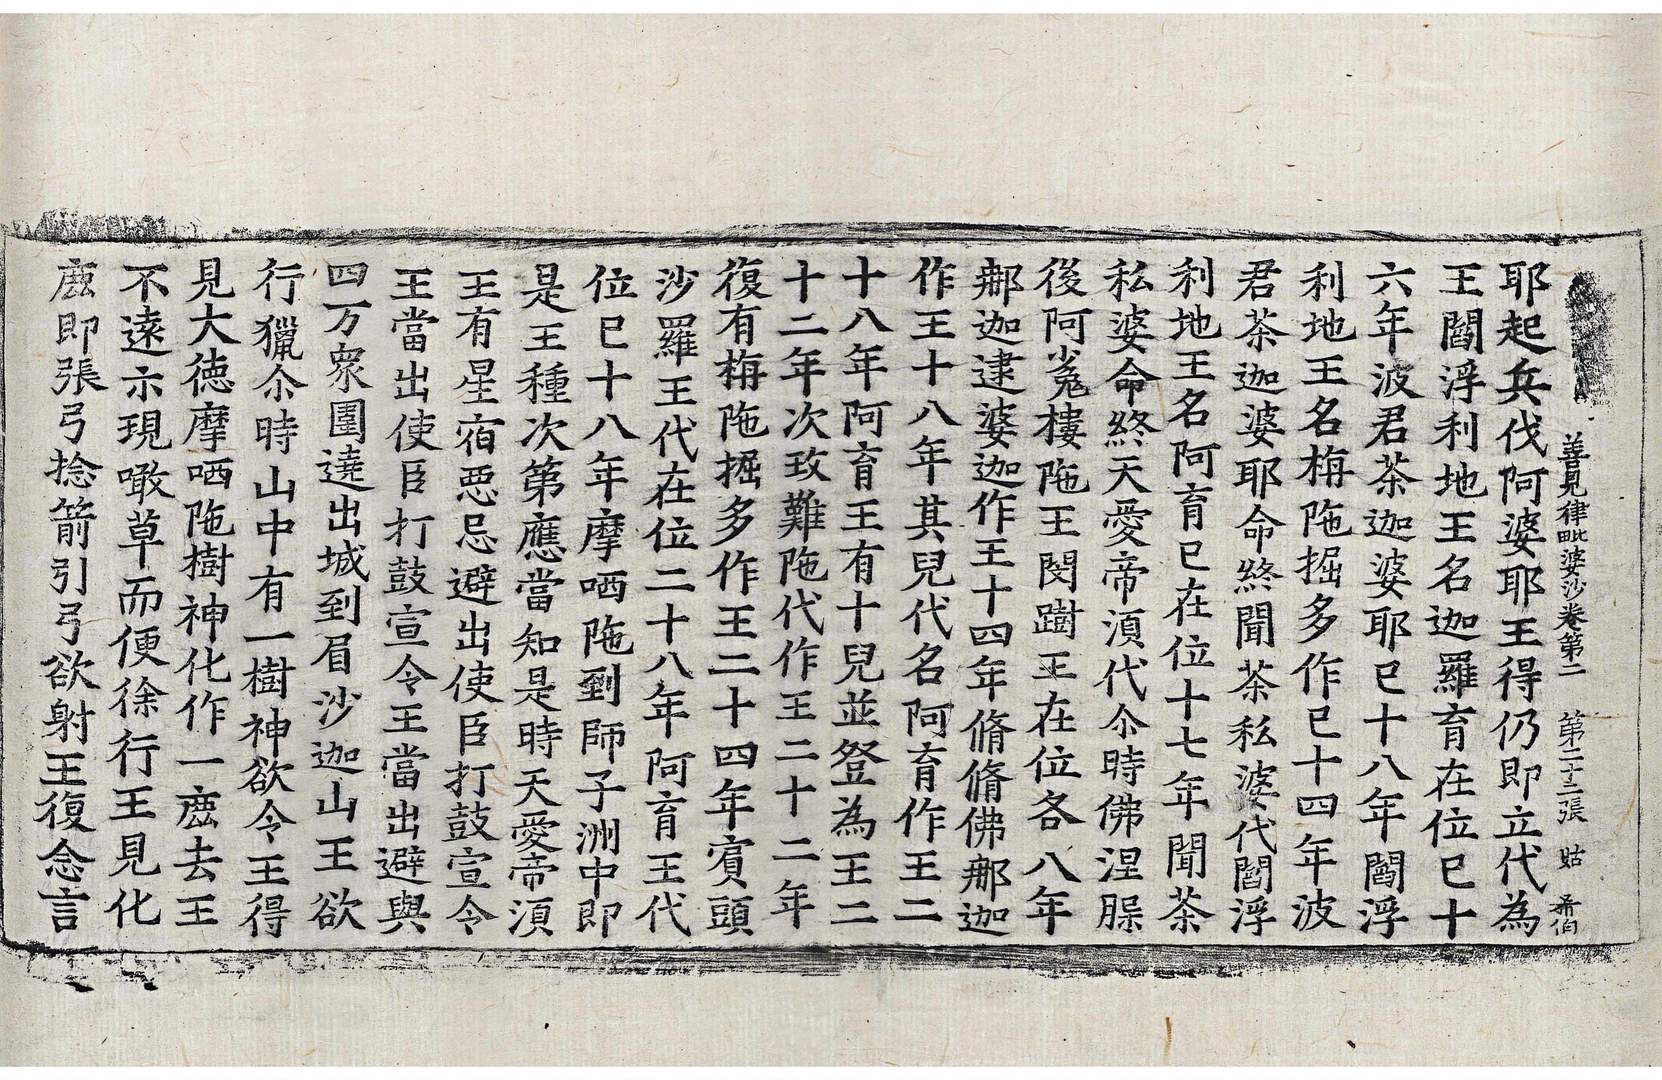 善見律毗婆沙卷第二 第二十三張 姑 希伯
耶起兵伐阿婆耶王得仍即立代為
王閻浮利地王名迦羅育在位已十
六年波君茶迦婆耶已十八年閻浮
利地王名栴陁掘多作已十四年波
君茶迦婆耶命終聞茶私婆代閻浮
利地王名阿育已在位十七年聞茶
私婆命終天愛帝湏代尒時佛涅脲
後阿㝹樓陁王閔躕王在位各八年
郍迦逮婆迦作王十四年脩脩佛郍迦
作王十八年其兒代名阿育作王二
十八年阿育王有十兒並登為王二
十二年次玫難陁代作王二十二年
復有栴陁掘多作王二十四年賔頭
沙羅王代在位二十八年阿育王代
位已十八年摩哂陁到師子洲中即
是王種次第應當知是時天愛帝湏
王有星宿惡忌避出使臣打鼓宣令
王當出使臣打鼓宣令王當出避與
四万衆圍遶出城到眉沙迦山王欲
行獵尒時山中有一樹神欲令王得
見大德摩哂陁樹神化作一鹿去王
不遠示現噉草而便徐行王見化
鹿即張弓捻箭引弓欲射王復念言